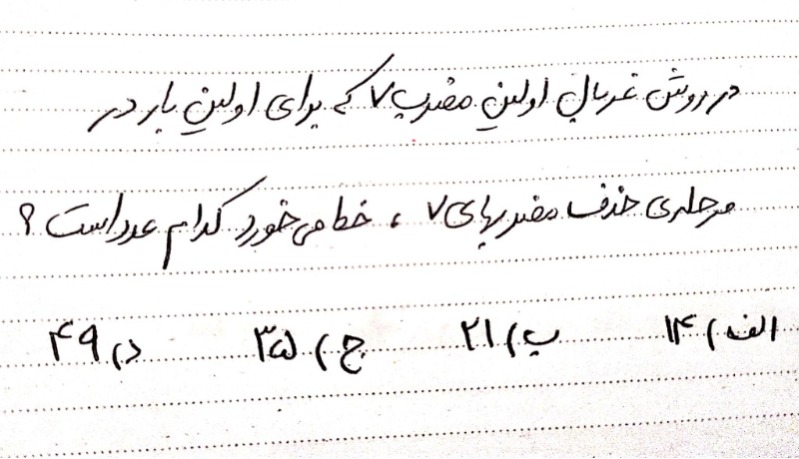 در روش غربال اولین مضرب ۷ که برای اولین بار در
مرحله‌ی حذف مضرب‌های ۷ ، خط می‌خورد کدام عدد است ؟
الف) ۱۴ ب) ۲۱ ج) ۳۵ د) ۴۹